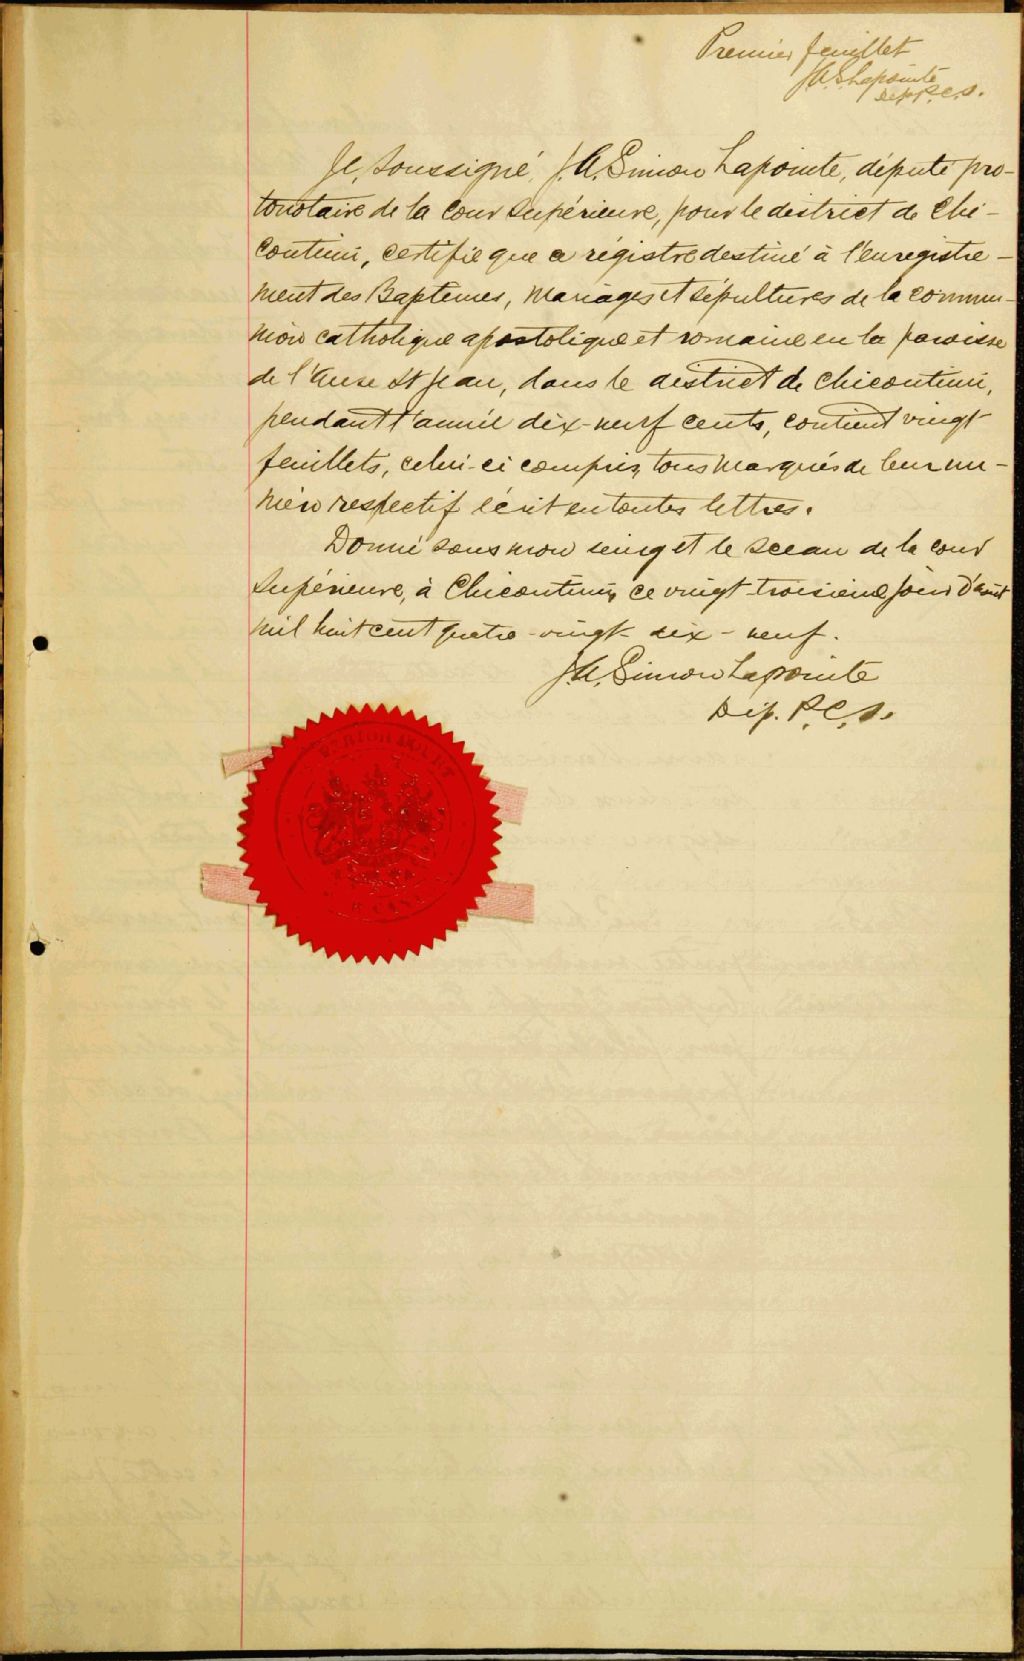 Premier feuillet
J.A.S. Lapointe
Dep. P.C.S.
Je, soussigné, J.A. Simon Lapointe, député pro-
tonotaire de la Cour Supérieure, pour le district de Chi-
coutimi, certifie que ce régistre destiné à l'enregistre-
ment des Baptêmes, Mariages et Sépultures de la commu-
nion catholique apostolique et romaine en la paroisse
de l'Anse St Jean, dans le district de Chicoutimi,
pendant l'année dix-neuf cents, contient vingt
feuillets, celui-ci compris, tous marqués de leur nu-
méro respectif écrit en toutes lettres.
Donné sous mon seing et le sceau de la Cour
Supérieure, à Chicoutimi, ce vingt-troisième jour d'août
mil huit cent quatre-vingt-dix-neuf.
J.A. Simon Lapointe
Dép. P.C.S.
SUPERIOR COURT